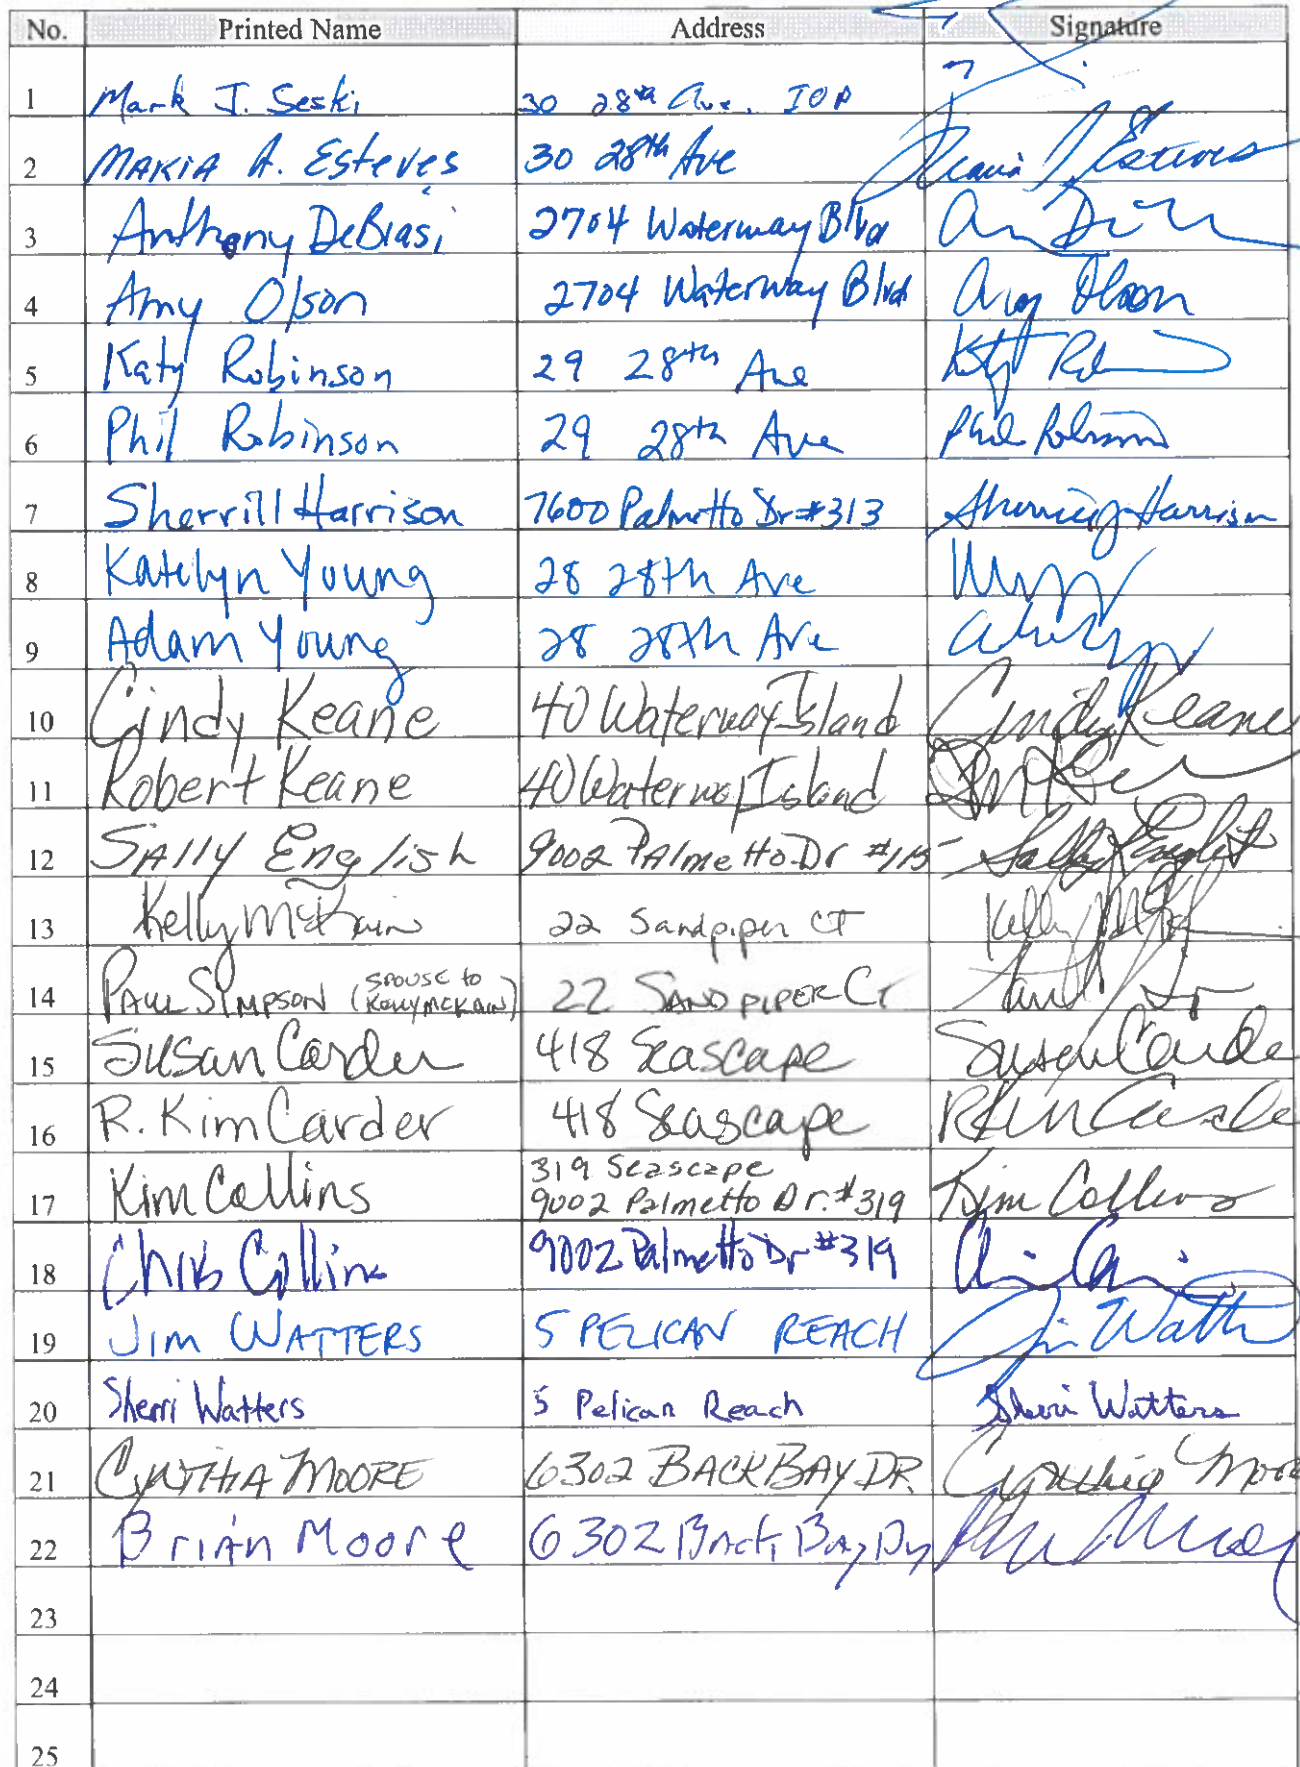 No. Printed Name Address Signature
1 Mark J. Seski 30 28th Ave. IOP
2 MARIA A. Esteves 30 28th Ave Maria Esteves
3 Anthony DeBiasi 2704 Waterway Blvd
4 Amy Olson 2704 Waterway Blvd Amy Olson
5 Katy Robinson 29 28th Ave
6 Phil Robinson 29 28th Ave Phil Robinson
7 Sherrill Harrison 7600 Palmetto Dr #313 Harrison
8 Katelyn Young 28 28th Ave
9 Adam Young 28 28th Ave
10 Cindy Keane 40 Waterway Island Cindy Keane
11 Robert Keane 40 Waterway Island
12 SAlly English 9002 PAlmetto Dr #115 Sally English
13 Kelly McKain 22 Sandpiper CT Kelly
14 PAUL SIMPSON (SPOUSE to KELLY MCKAIN) 22 SANDPIPER CT
15 Susan Carder 418 Seascape Susan Carde
16 R. Kim Carder 418 Seascape R Kim Carde
17 Kim Collins 319 Seascape
9002 Palmetto Dr. #319 Kim Collins
18 Chris Collins 9002 Palmetto Dr #319
19 JIM WATTERS 5 PELICAN REACH Jim Watt
20 Sherri Watters 5 Pelican Reach Sherri Watters
21 CYNTHIA MOORE 6302 BACK BAY DR. Cynthia Moore
22 Brian Moore 6302 Back Bay Dr
23
24
25